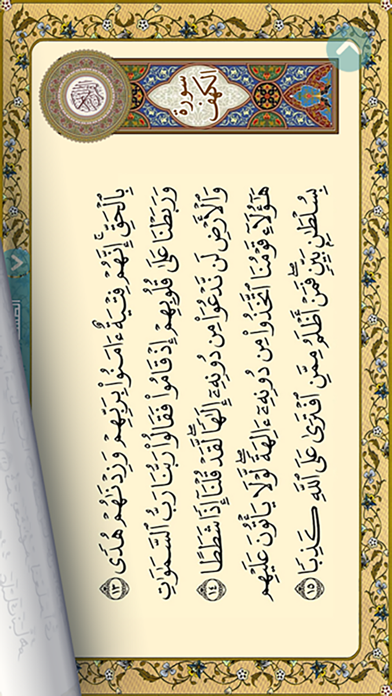 سورة
الكهف
بِٱلْحَقِّ ۚ إِنَّهُمْ فِتْيَةٌ ءَامَنُوا۟ بِرَبِّهِمْ وَزِدْنَٰهُمْ هُدًى ١٣
وَرَبَطْنَا عَلَىٰ قُلُوبِهِمْ إِذْ قَامُوا۟ فَقَالُوا۟ رَبُّنَا رَبُّ ٱلسَّمَٰوَٰتِ
وَٱلْأَرْضِ لَن نَّدْعُوَا۟ مِن دُونِهِۦٓ إِلَٰهًا ۖ لَّقَدْ قُلْنَآ إِذًا شَطَطًا ١٤
هَٰٓؤُلَآءِ قَوْمُنَا ٱتَّخَذُوا۟ مِن دُونِهِۦٓ ءَالِهَةً ۖ لَّوْلَا يَأْتُونَ عَلَيْهِم
بِسُلْطَٰنٍۭ بَيِّنٍ ۖ فَمَنْ أَظْلَمُ مِمَّنِ ٱفْتَرَىٰ عَلَى ٱللَّهِ كَذِبًا ١٥